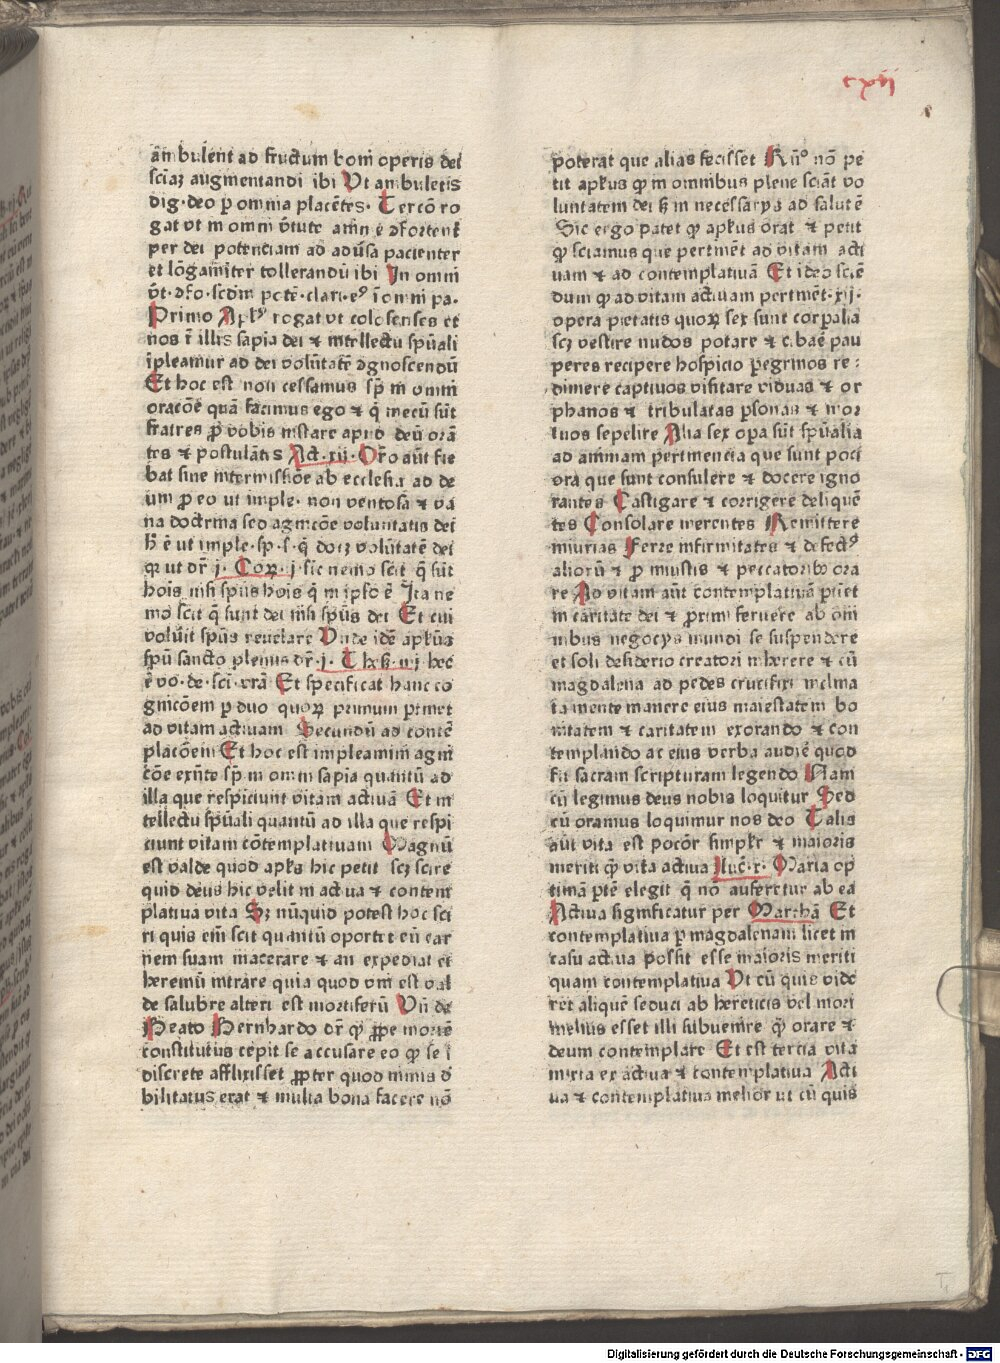 cxii
am bulent ad fructum boni operis dei
sciaꝫ augmentandi ibi Vt ambuletis
dig·deo p omnia placētes· Tercō ro
gat vt in omni v̄tute
per dei potenciam ad aduſa pacienter
et lōgamīter tollerandū ibi In omni
Primo Aplꝰ rogat vt colosenses et
nos r̄ illis sapia dei ⁊ intellectu spūali
īpleamur ad dei volūtatē ꝯgnoscendū
Et hoc est non cessamus sp̄ in omni
oracōe quā facimus ego ⁊ q̄ mecū sūt
fratres ꝓ vobis instare apud deū orā
tes ⁊ postulātis Act·xii·Oro aūt fie
bat sine intermissiōe ab ecclesia ad de
um ꝓ eo ut imple· non ventosa ⁊ va
na doctrina sed agnicōe voluntatis dei
h̄ ē ut imple·sp·s·q̄ doiꝫ volūtatē dei
qꝛ ut dr̄ j· Coꝝ· j·sic nemo scit q̄ sūt
hoīs nisi spūs hoīs q̄ in ipso ē Ita ne
mo scit q̄ sunt dei nisi spūs dei Et cui
voluit spūs reuelare Vnde idē aplūs
spū sancto plenus dr̄·j· Thess·iiij hec
ē vo·de·sci·vrā Et specificat hanc co
gnicōem p duo quoꝝ primum ptinet
ad vitam actiuam Secundū ad contē
placōem Et hoc est impleamini agni
cōe exn̄te sp̄ in omni sapia quantū ad
illa que respiciunt vitam actiuā Et in
tellectu spūali quantū ad illa que respi
ciunt vitam cōtemplatiuam Magnū
est valde quod aplꝰs hic petit scꝫ scire
quid deus hic velit in actiua ⁊ contem
platiua vita Sꝫ nūquid potest hoc sci
ri quis eīn scit quantū oportet eū car
nem suam macerare ⁊ an expediat ei
heremū intrare quia quod vni est val
de salubre alteri est mortiferū Vn̄ de
Beato Bernhardo dr̄ ꝙ ꝓpe mortē
constitutus cepit se accusare eo ꝙ se ī
discrete afflixisset ꝓpter quod nimis d
bilitatus erat ⁊ multa bona facere nō
poterat que alias fecisset Rn̄ꝰ nō pe
tit aplꝰus ꝙ in omnibus plene sciāt vo
luntatem dei sꝫ in necessarys ad salutē
Sic ergo patet ꝙ aplꝰus orat ⁊ petit
ꝙ sciamus que pertinēt ad vitam acti
uam ⁊ ad contemplatiuā Et ideo sciē
dum ꝙ ad vitam actiuam pertinēt·xij·
opera pietatis quoꝝ sex sunt corꝑalia
scꝫ vestire nudos potare ⁊ cibare pau
peres recipere hospicio pegrinos re:
dimere captiuos visitare viduas ⁊ or
phanos ⁊ tribulatas ꝑsonas ⁊ mor
tuos sepelire Alia sex oꝑa sūt spūalia
ad animam pertinencia que sunt poci
ora que sunt consulere ⁊ docere igno
rantes Castigare ⁊ corrigere deliquē
tes Consolare merentes Remittere
iniurias Ferre infirmitates ⁊ defectꝰ
aliorū ⁊ ꝓ iniustis ⁊ peccatoribꝰ ora
re Ad vitam aūt contemplatiuā ꝑtinet
in caritate dei ⁊ ꝓximi feruere ab om
nibus negocys mundi se suspendere
et soli desiderio creatori inherere ⁊ cū
magdalena ad pedes crucifixi inclina
ta mente manere eius maiestatem bo
nitatem ⁊ caritatem exorando ⁊ con
templando ac eius verba audiē quod
fit sacram scripturam legendo Nam
cū legimus deus nobis loquitur Sed
cū oramus loquimur nos deo Talis
aūt vita est pocōr simplꝛ ⁊ maioris
meriti ꝙ vita actiua Luc·x· Maria op
timā ꝑtē elegit q̄ nō auferetur ab ea
Actiua significatur per Marthā Et
contemplatiua p magdalenam licet in
casu actiua possit esse maioris meriti
quam contemplatiua Vt cū quis vide
ret aliquē seduci ab hereticis vel mori
melius esset illi subuenire ꝙ orare ⁊
deum contemplare Et est tercia vita
mixta ex actiua ⁊ contemplatiua Acti
ua ⁊ contemplatiua melior ut cū quis
Digitalisierung gefördert durch die Deutsche Forschungsgemeinschaft - DFG